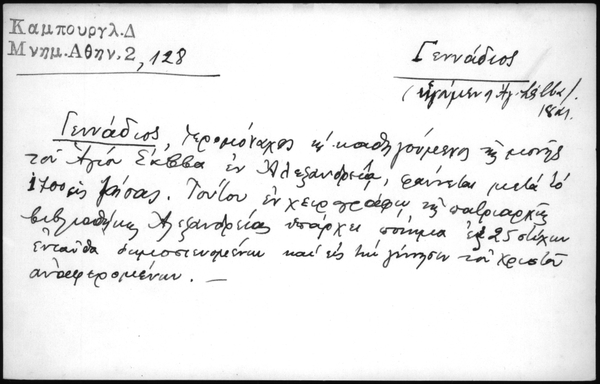 Καμπουργλ.Δ
Μνημ.Αθην.2, 128
Γεννάδιος
(ηγούμεν Αγ. Σάββα).
18 αι.
Γεννάδιος, Ιερομόναχος κ' καθηγούμενος της μονής
του Αγίου Σάββα εν Αλεξανδρεία, φαίνεται μετά το
1700 ζήσας. Τούτου εν χειρογράφω της πατριαρχ
βιβλιοθήκης Αλεξανδρείας υπάρχει ποίημα εκ 25 στίχων
ενταύθα δημοσιευομένων και εις την γέννησιν του Χριστού
αναφερομένων. —